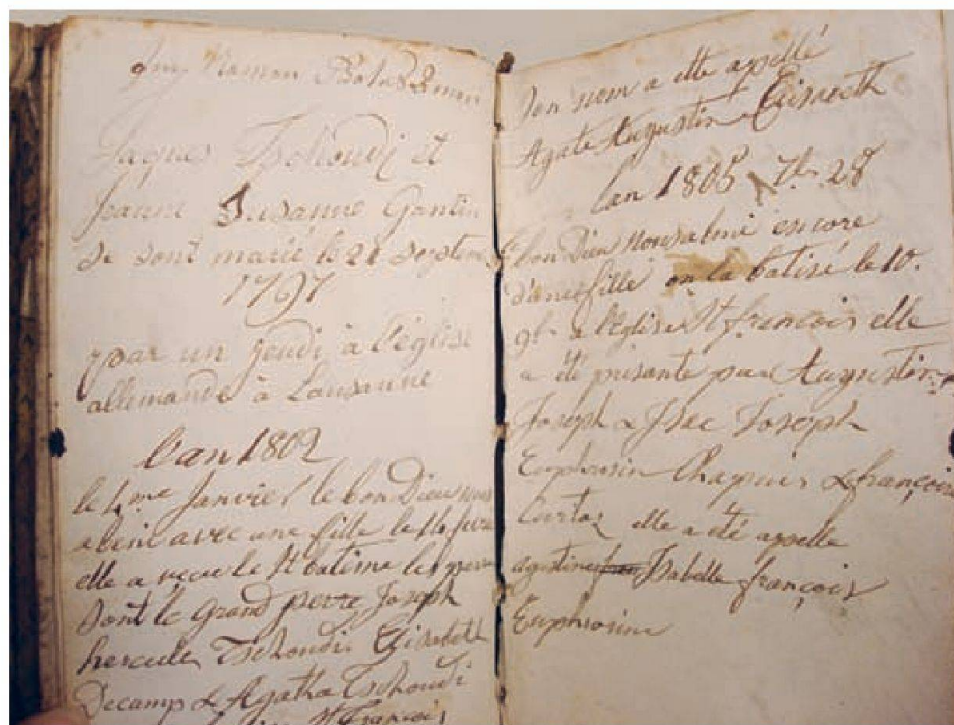 Jaques Tschoudi et
Jeanne Susanne Gantin
se sont marié le 21 septem
1797
par un jeudi à l'église
allemande à Lausanne
l'an 1802
le 4me Janvier le bon Dieu nous
a béni avec une fille le 14 fevr
elle a reçu le St batême les
Dont le Grand perre Joseph
hercule Tschoudi Elisabeth
Decamp & Agatha Tschoudi
St François
Son nom a ette appellé
Agate Augustin Elisabeth
lan 1805 7br 28
le bon Dieu nous a beni encore
d'une fille on la batisé le 10.
9br a l'eglise St françois elle
a été présante par Augustin
Joseph & Joseph
Euphrosin Chapuis & françoise
elle a été appelle
Isabelle françois
Euphrosine